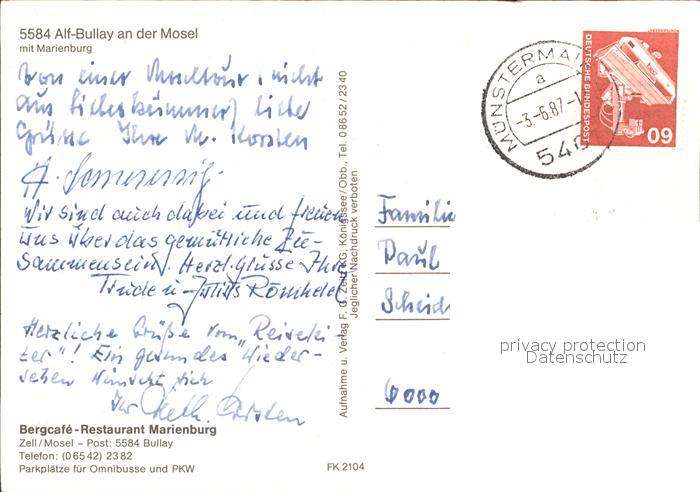 5584 Alf-Bullay an der Mosel
mit Marienburg
Von einer Moseltour, nicht
aus Liebeskummer, liebe
Grüsse Ihre M. Korsten
Wir sind auch dabei und freuen
uns über das gemütliche Zu-
sammensein. Herzl. Grüsse Ihre
Trude u.
Herzliche Grüße vom "Reiselei
ter"! Ein gesundes Wieder-
sehen wünscht sich
Ihr
Bergcafé-Restaurant Marienburg
Zell/Mosel – Post: 5584 Bullay
Telefon: (06542) 2382
Parkplätze für Omnibusse und PKW
FK 2104
Aufnahme u. Verlag F. G. Zeitz KG, Königssee/Obb., Tel. 08652/2340
Jeglicher Nachdruck verboten
MÜNSTERMA
a
-3.-6.87-1
54
DEUTSCHE BUNDESPOST
60
Familie
Paul
Scheid
privacy protection
Datenschutz
6000